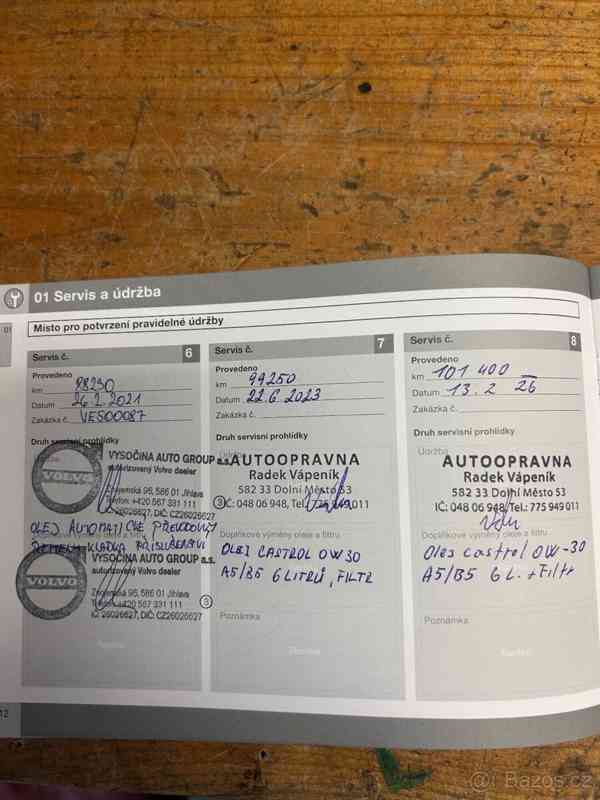 01 Servis a údržba
01
Místo pro potvrzení pravidelné údržby
Servis č. 6
Provedeno
km 98230
Datum 26.2.2021
Zakázka č. VES00087
Druh servisní prohlídky
VYSOČINA AUTO GROUP a.s.
autorizovaný Volvo dealer
VOLVO
Znojemská 96, 586 01 Jihlava
Telefon: +420 567 331 111
IČ: 26026627, DIČ: CZ26026627
3
OLEJ AUTOMATICKÉ PŘEVODOVKY
ŘEMEN, KLADKA PŘÍSLUŠENSTVÍ
VYSOČINA AUTO GROUP a.s.
autorizovaný Volvo dealer
VOLVO
Znojemská 96, 586 01 Jihlava
Telefon: +420 567 331 111
IČ: 26026627, DIČ: CZ26026627
3
Servis č. 7
Provedeno
km 99250
Datum 22.6.2023
Zakázka č.
Druh servisní prohlídky
AUTOOPRAVNA
Radek Vápeník
582 33 Dolní Město 53
IČ: 048 06 948, Tel.: 775 949 011
Doplňkové výměny oleje a filtru
OLEJ CASTROL 0W30
A5/B5 6 LITRŮ, FILTR
Poznámka
Servis č. 8
Provedeno
km 101 400
Datum 13.2 26
Zakázka č.
Druh servisní prohlídky
Údržba
AUTOOPRAVNA
Radek Vápeník
582 33 Dolní Město 53
IČ: 048 06 948, Tel.: 775 949 011
Doplňkové výměny oleje a filtru
Olej castrol 0W-30
A5/B5 6 L. + Filtr
Poznámka
12
Bazos.cz